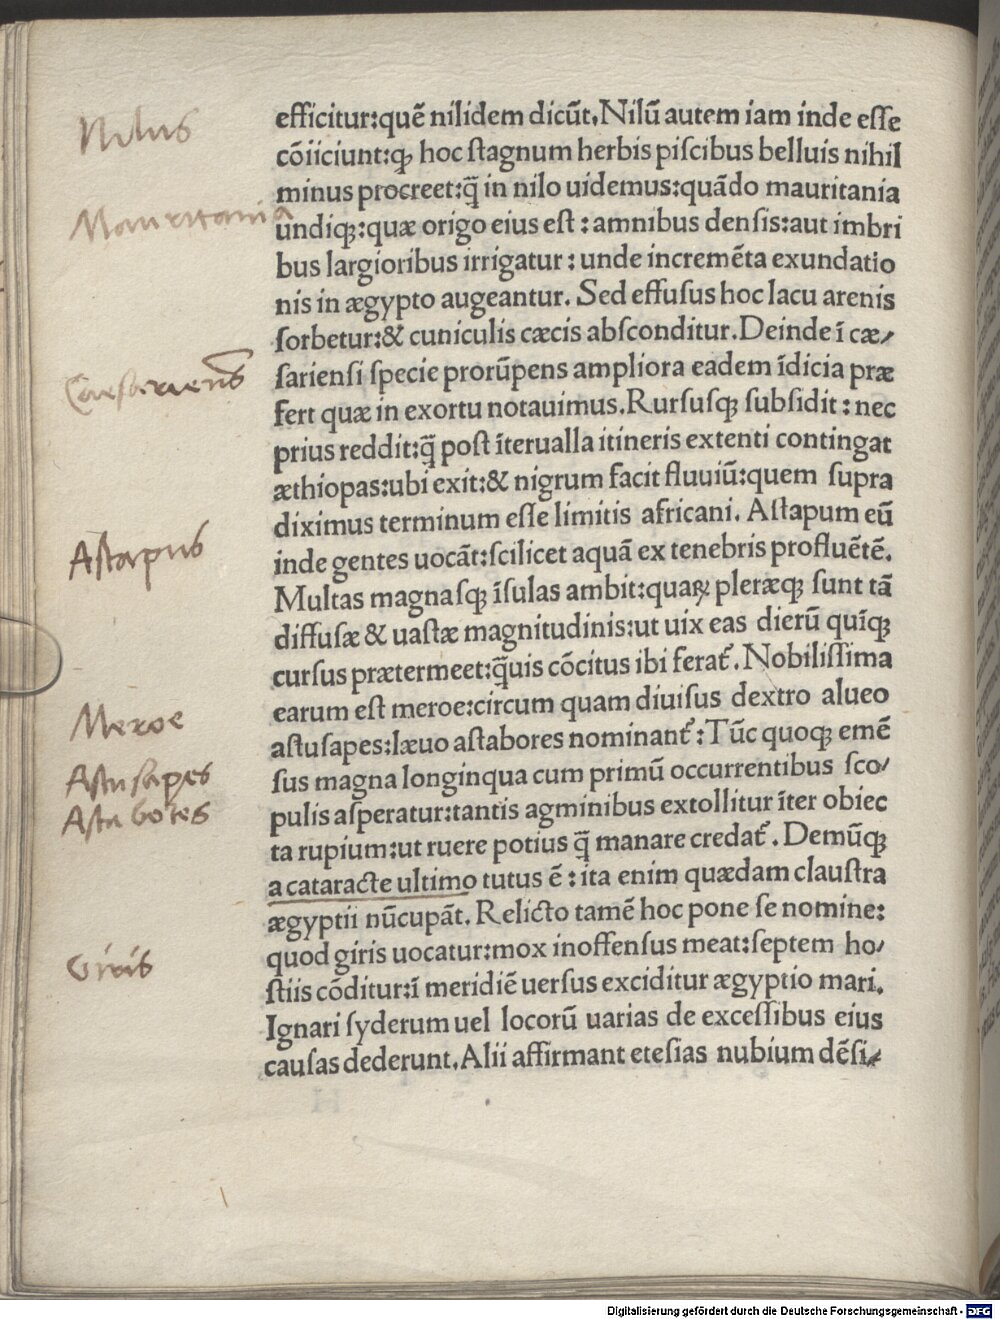 Nilus
efficitur:quē nilidem dicūt.Nilū autem iam inde eſſe
cōiiciunt:ꝙ hoc ſtagnum herbis piſcibus belluis nihil
minus procreet:q̄ in nilo uidemus:quādo mauritania
Mauritania
undiqꝫ:quæ origo eius eſt : amnibus denſis:aut imbri
bus largioribus irrigatur : unde incremēta exundatio
nis in ægypto augeantur. Sed effuſus hoc lacu arenis
ſorbetur:& cuniculis cæcis abſconditur.Deinde ī cæ/
Caesariens
ſarienſi ſpecie prorūpens ampliora eadem īdicia præ
fert quæ in exortu notauimus.Rurſuſqꝫ ſubſidit : nec
prius reddit:q̄ poſt īterualla itineris extenti contingat
æthiopas:ubi exit:& nigrum facit fluuiū:quem ſupra
diximus terminum eſſe limitis africani. Aſtapum eū
Astapus
inde gentes uocāt:ſcilicet aquā ex tenebris profluētē.
Multas magnaſqꝫ īſulas ambit:quaꝝ pleræqꝫ ſunt tā
diffuſæ & uaſtæ magnitudinis:ut uix eas dierū quīqꝫ
curſus prætermeet:q̄uis cōcitus ibi ferat᷑. Nobiliſſima
earum eſt meroe:circum quam diuiſus dextro alueo
Meroe
aſtuſapes:læuo aſtabores nominant᷑ : Tūc quoqꝫ emē
Astusapes
ſus magna longinqua cum primū occurrentibus ſco/
Astabores
pulis aſperatur:tantis agminibus extollitur īter obiec
ta rupium:ut ruere potius q̄ manare credat᷑ . Demūqꝫ
a cataracte ultimo tutus ē : ita enim quædam clauſtra
ægyptii nūcupāt. Relicto tamē hoc pone ſe nomine:
quod giris uocatur:mox inoffenſus meat:ſeptem ho/
Giris
ſtiis cōditur:ī meridiē uerſus exciditur ægyptio mari.
Ignari ſyderum uel locorū uarias de exceſſibus eius
cauſas dederunt.Alii affirmant eteſias nubium dēſi/
Digitalisierung gefördert durch die Deutsche Forschungsgemeinschaft - DFG